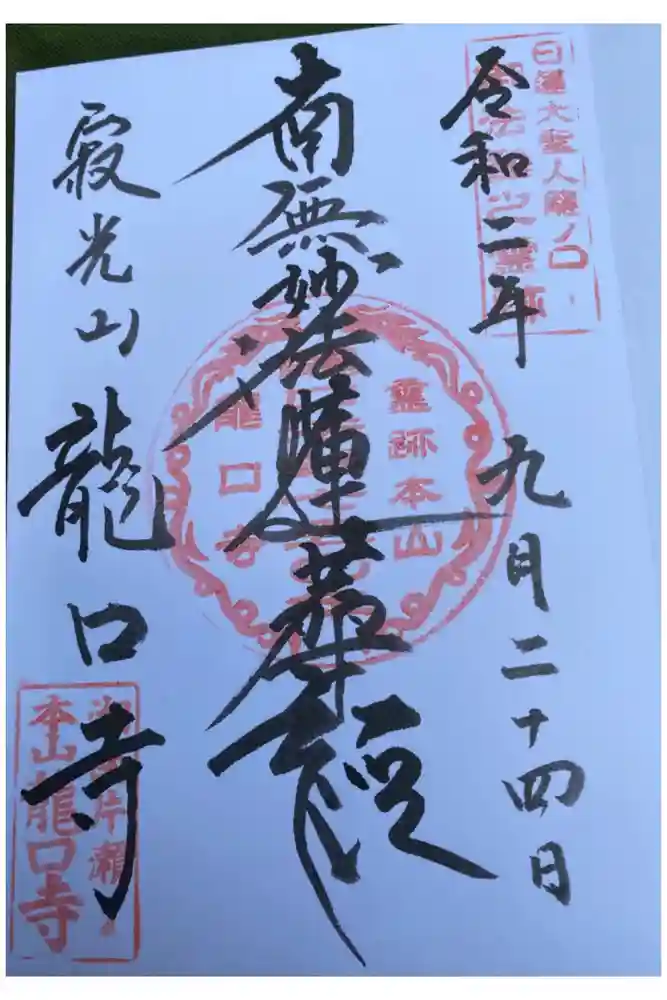 令和二年 九月二十四日
日蓮大聖人龍ノ口
御法難之霊跡
南無妙法蓮華経
霊跡本山
龍口寺
寂光山 龍口寺
片瀬
本山龍口寺